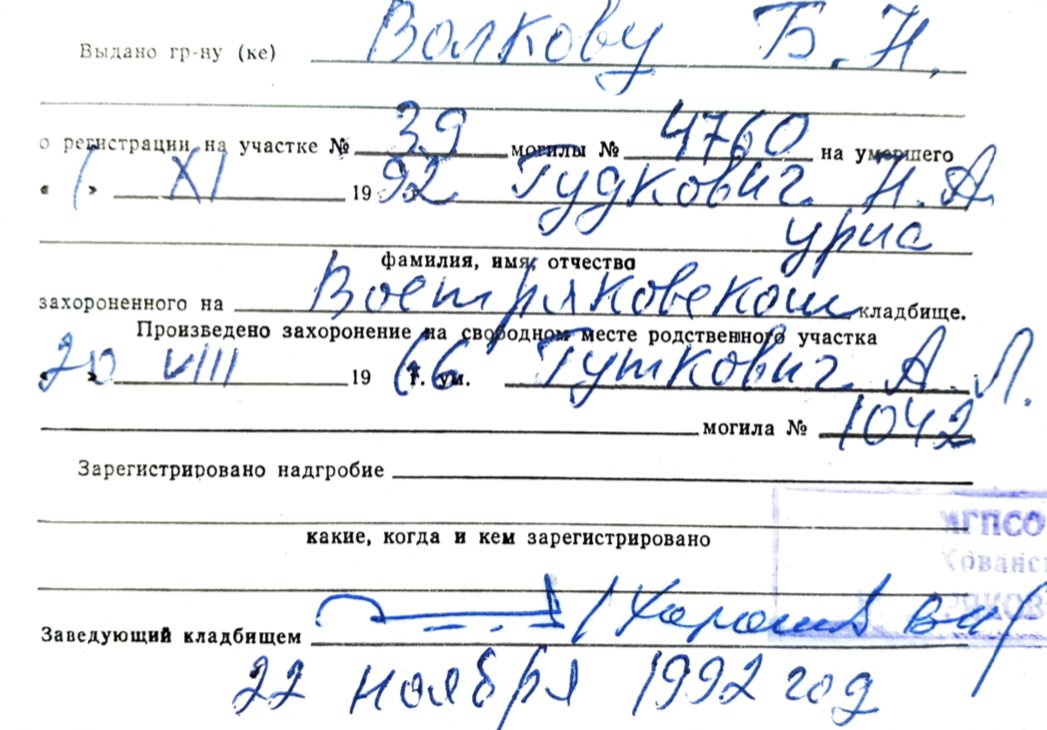 Выдано гр-ну (ке) Волкову Б. Н.
о регистрации на участке № 39 могилы № 4760 на умершего
« 1 » XI 1992 Гудкович Н. А
урна
фамилия, имя, отчество
захороненного на Востряковском кладбище.
Произведено захоронение на свободном месте родственного участка
« 20 » VIII 1966 г. ум. Гуткович А. Л.
могила № 1042
Зарегистрировано надгробие
МГПСО
Хованс
какие, когда и кем зарегистрировано
ряков
Заведующий кладбищем
22 ноября 1992 год